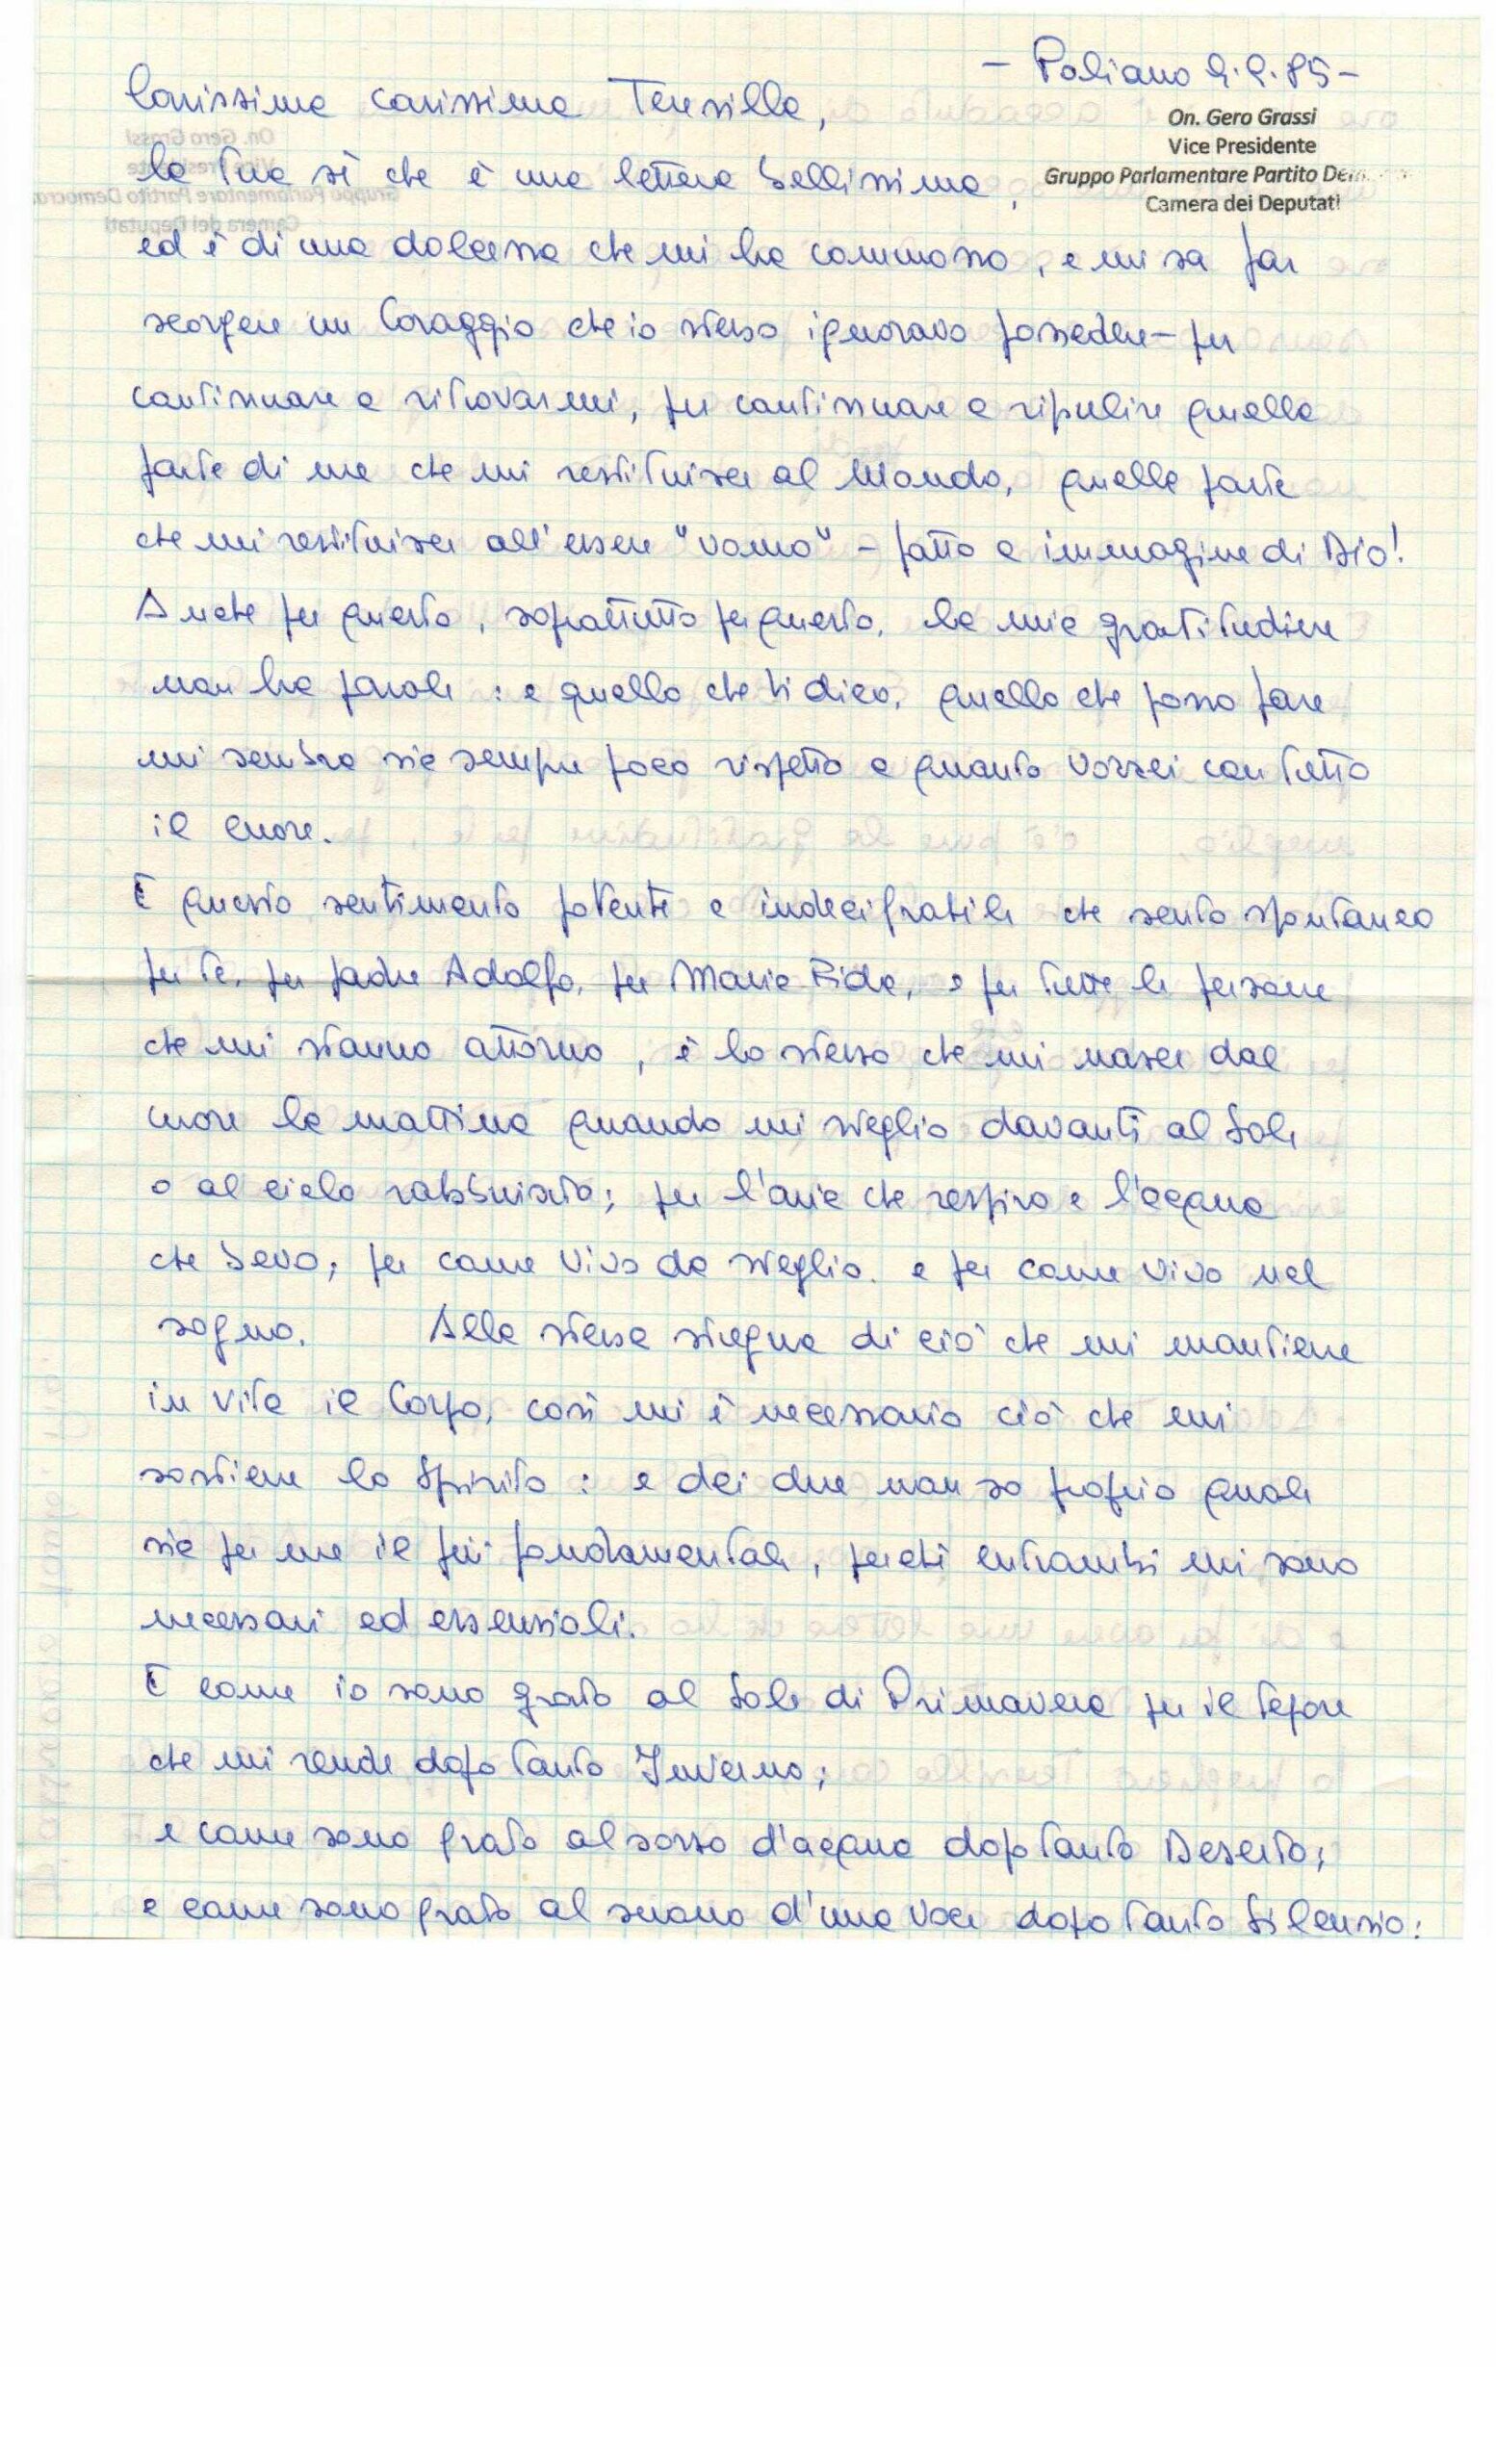 – Paliano 9.9.85 –
Carissima carissima Teresilla,
On. Gero Grassi
Vice Presidente
Gruppo Parlamentare Partito Dem
Camera dei Deputati
la tua sì che è una lettera bellissima,
ed è di una dolcezza che mi ha commosso, e mi sa far
scorgere un Coraggio che io stesso ignoravo possedere – per
continuare a ritrovarmi, per continuare a ripulire quella
parte di me che mi restituisce al Mondo, quella parte
che mi restituisce all'essere "uomo" – fatto a immagine di Dio!
Anche per questo, soprattutto per questo, la mia gratitudine
non ha parole : e quello che ti dico, quello che posso fare
mi sembra sia sempre poco rispetto a quanto vorrei con tutto
il cuore.
E questo sentimento potente e indecifrabile che sento spontaneo
per te, per padre Adolfo, per Maria Pide, e per tutte le persone
che mi stanno attorno, è lo stesso che mi nasce dal
cuore la mattina quando mi sveglio davanti al Sole
o al cielo rabbuiato; per l'aria che respiro e l'acqua
che bevo; per come vivo da sveglio. e per come vivo nel
sogno. Alla stessa stregua di ciò che mi mantiene
in vita il Corpo, così mi è necessario ciò che mi
sostiene lo Spirito : e dei due non so proprio quale
sia per me il più fondamentale, perchè entrambi mi sono
necessari ed essenziali.
E come io sono grato al Sole di Primavera per il tepore
che mi rende dopo tanto Inverno;
e come sono grato al sorso d'acqua dopo tanto Deserto;
e come sono grato al suono d'una voce dopo tanto Silenzio: